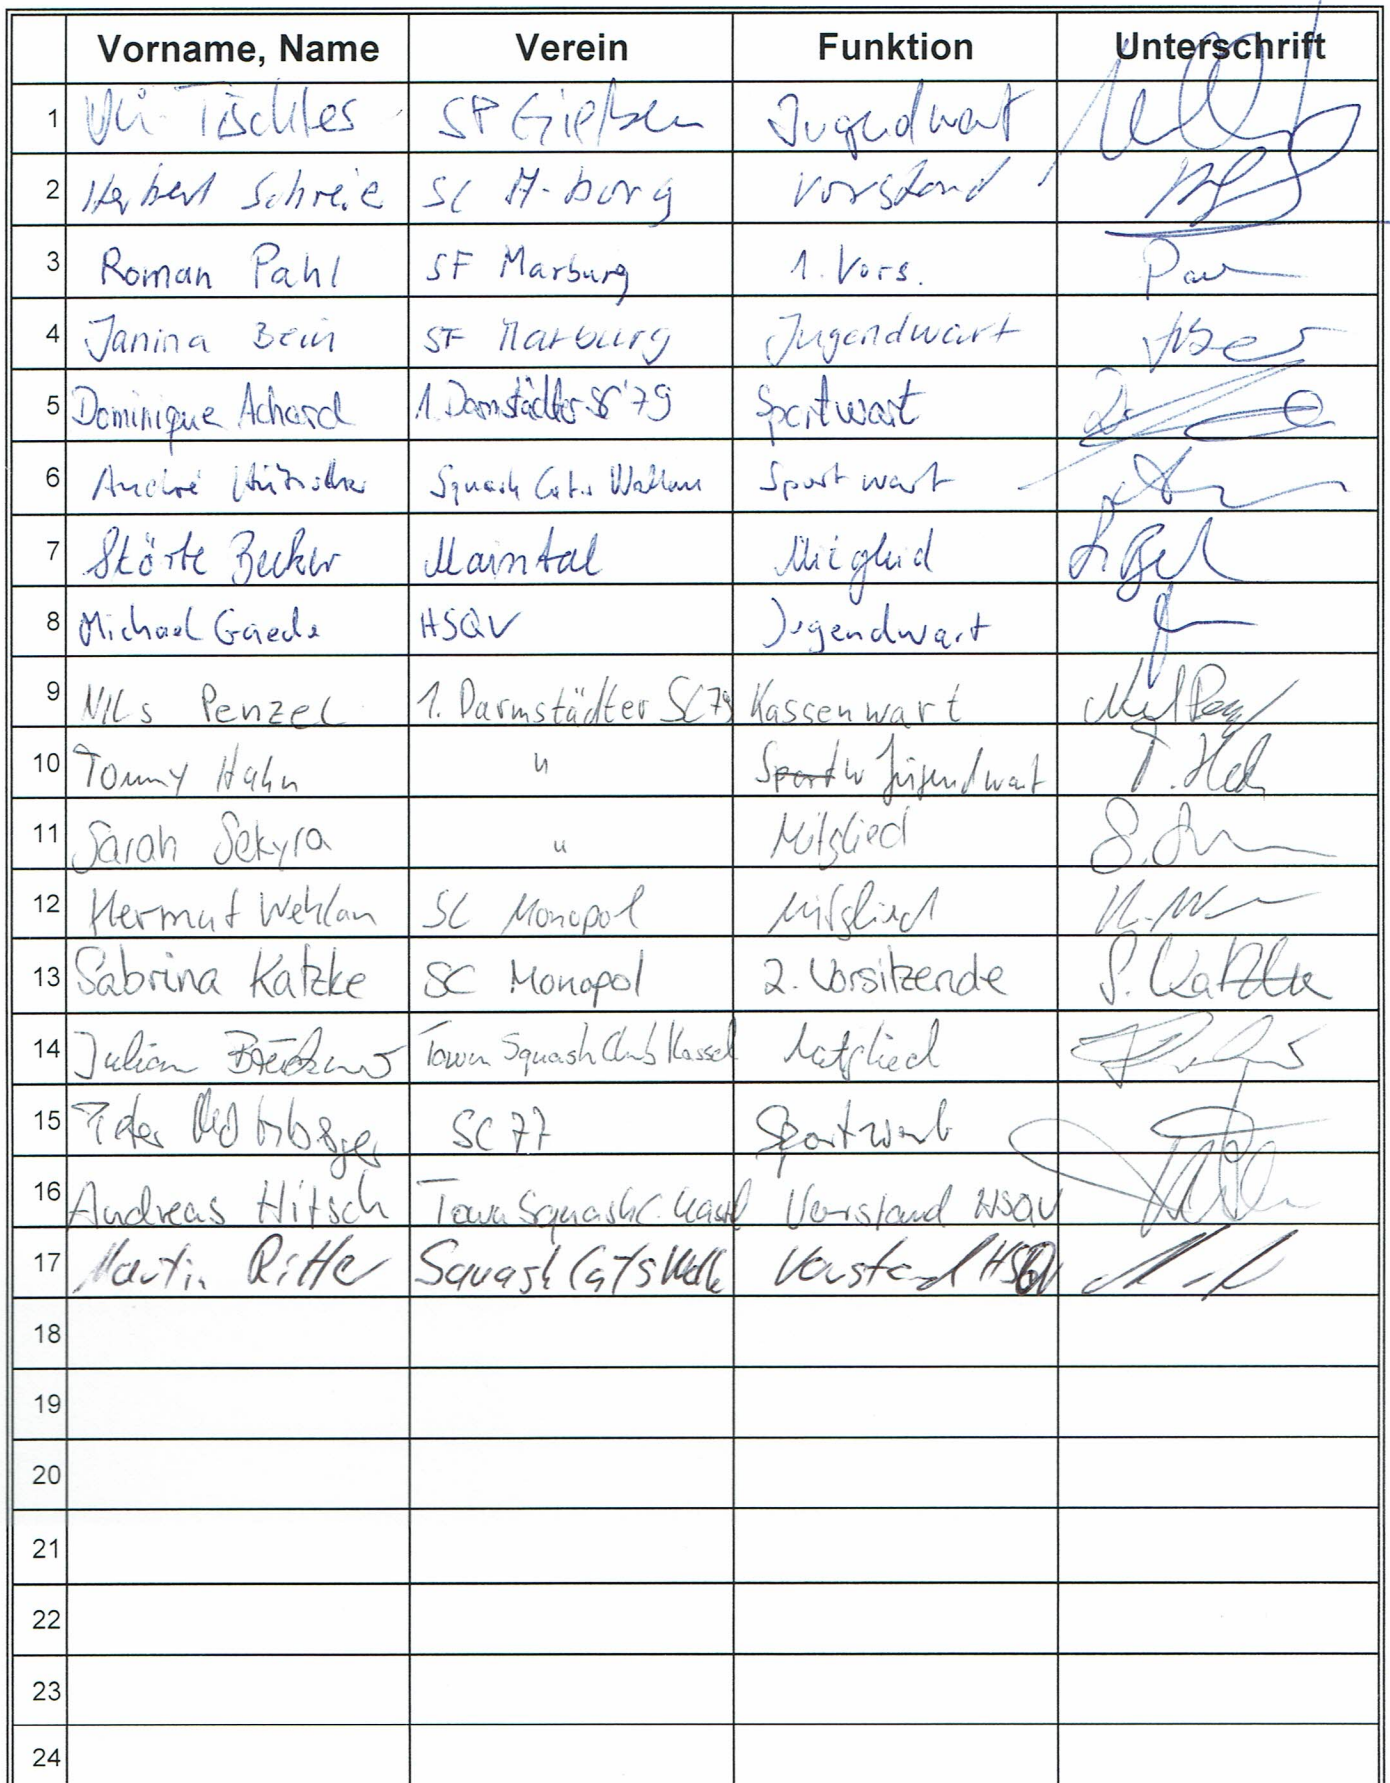 Vorname, Name Verein Funktion Unterschrift
1 Uli Tischles Jugendwart
2 Herbert SC Vorstand
3 Roman Pahl SF Marburg 1. Vors.
4 Janina Bein SF Marburg Jugendwart
5 Dominique Achard 1. Darmstädter SC'79 Sportwart
6 André Squash Cats Wallau Sportwart
7 Störte Becker Maintal Mitglied
8 Michael Gäde HSQV Jugendwart
9 Nils Penzel 1. Darmstädter SC 79 Kassenwart
10 Tommy Hahn " Jugendwart T. Hah
11 Sarah Sekyra " Mitglied
12 Hermut Wehlan SC Monopol Mitglied
13 Sabrina Katzke SC Monopol 2. Vorsitzende S. Katzke
14 Julian Town Squash Club Kassel Mitglied
15 Peter SC 77 Sportwart
16 Andreas Hitsch Town Squash C. Kassel Vorstand HSQV
17 Martin Ritter Squash Cats Vorstand HSQV
18
19
20
21
22
23
24